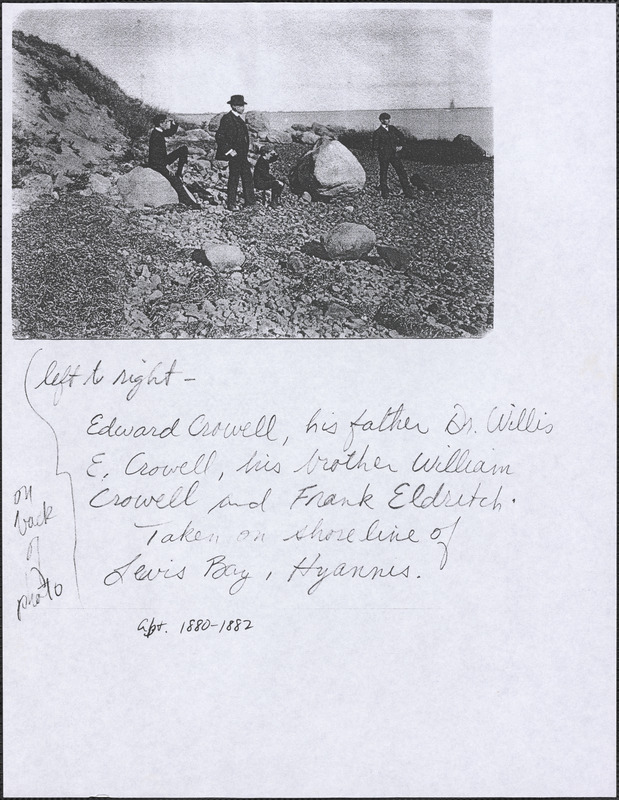 left to right -
Edward Crowell, his father Dr. Willis
E. Crowell, his brother William
Crowell and Frank Eldritch.
Taken on shoreline of
Lewis Bay, Hyannis.
on
back
of
photo
apt. 1880-1882